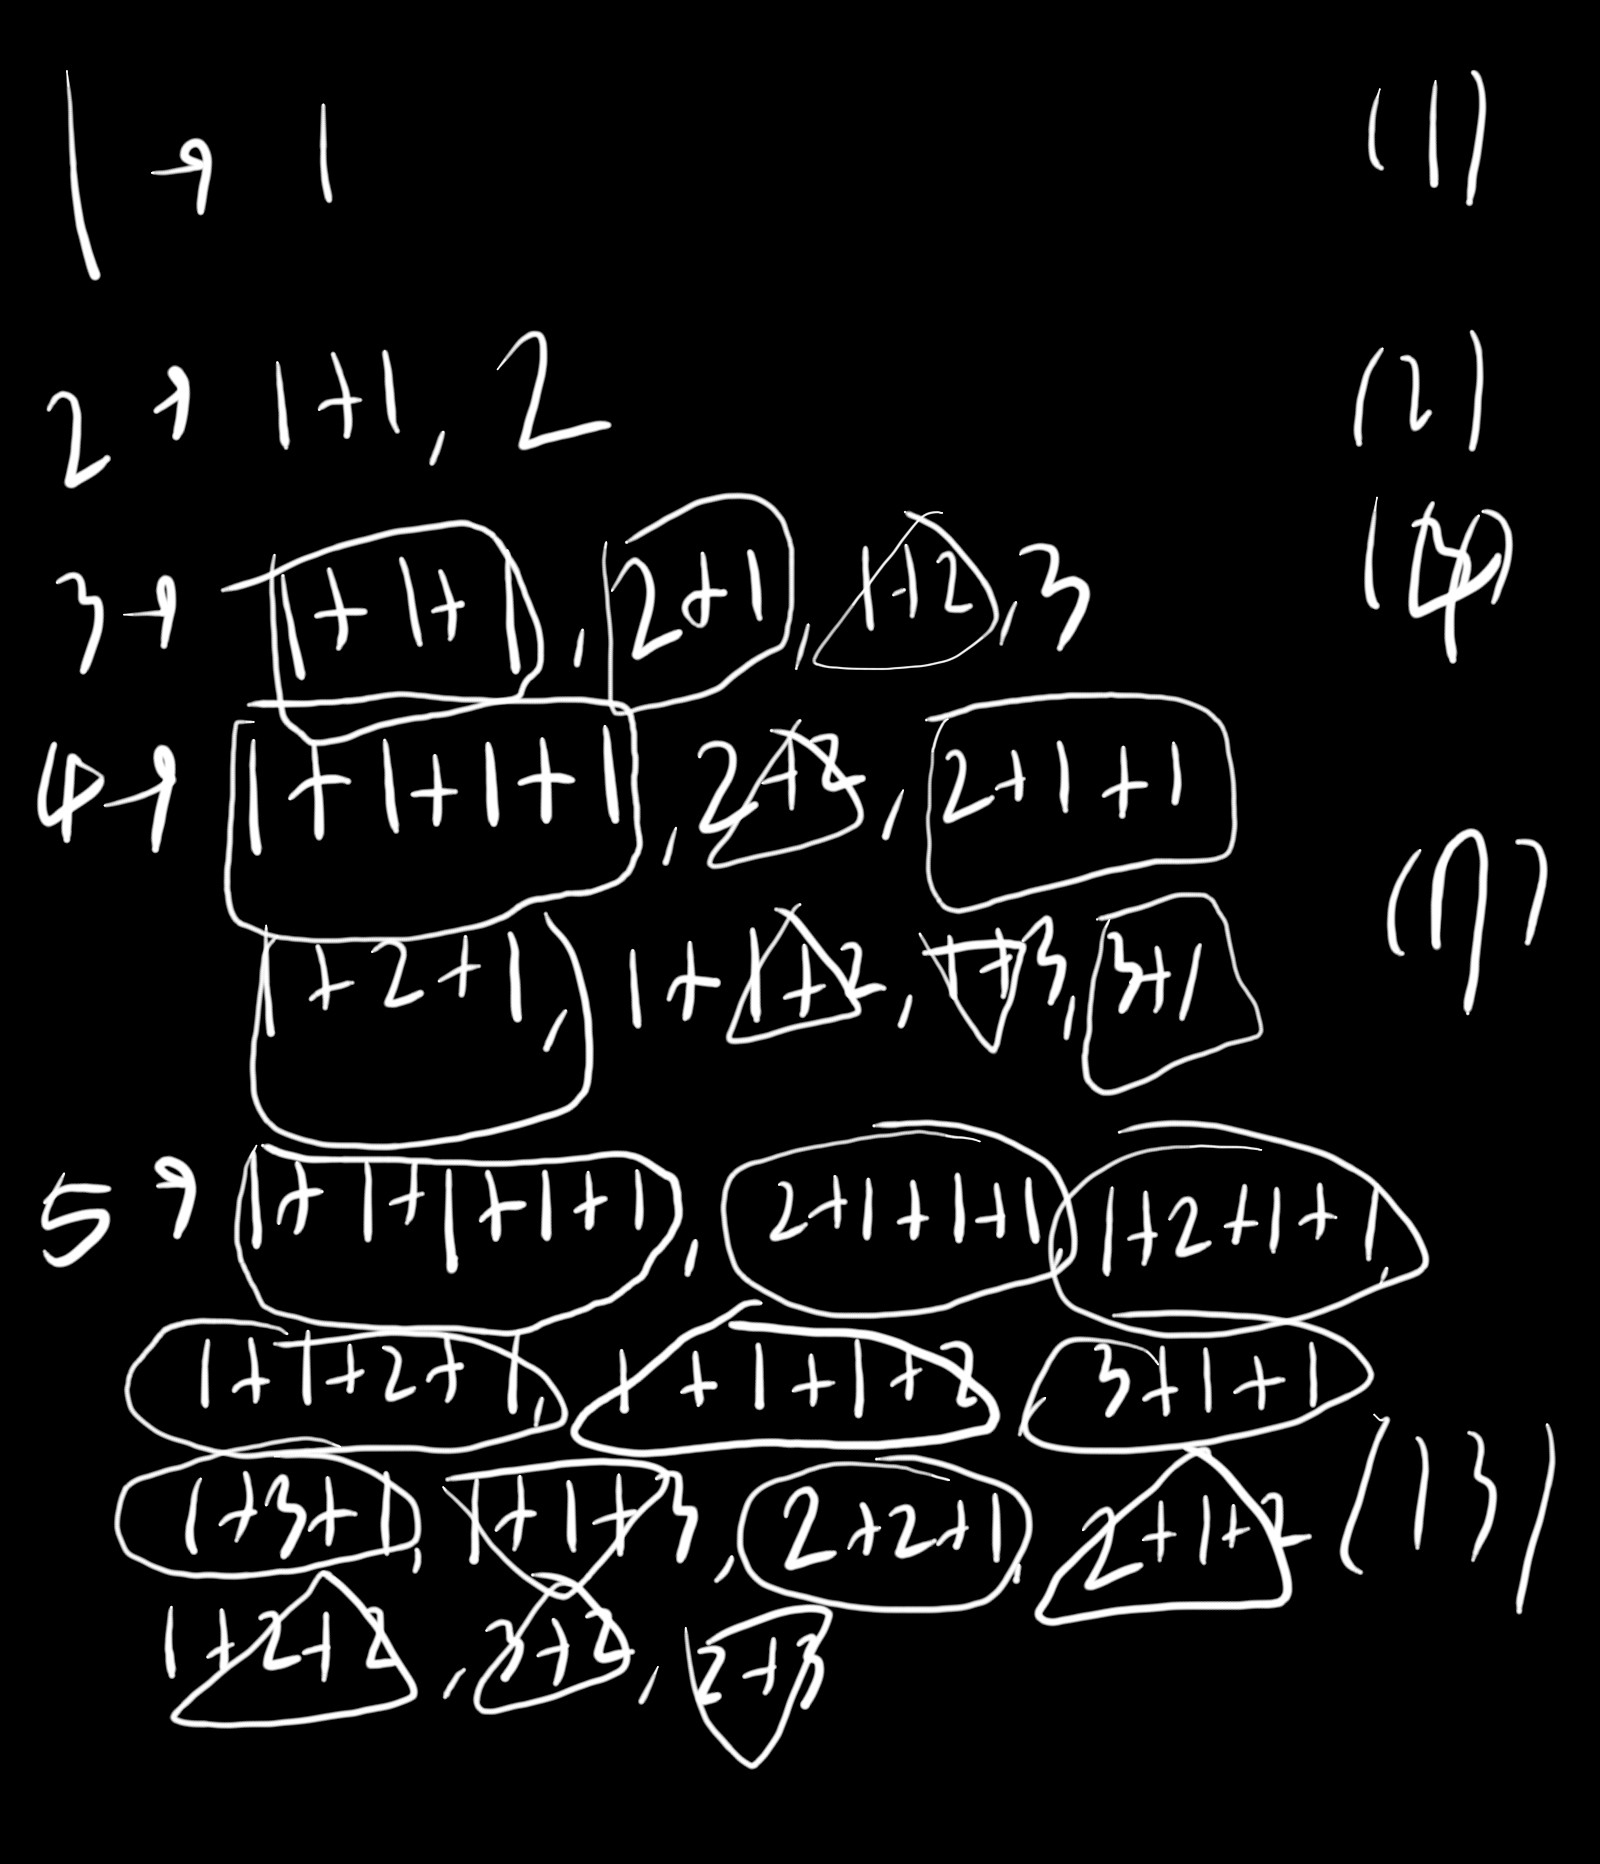 1 → 1 (1)
2 → 1+1, 2 (2)
3 → 1+1+1, 2+1, 1+2, 3 (4)
4 → 1+1+1+1, 2+2, 2+1+1
1+2+1, 1+1+2, 1+3, 3+1 (7)
5 → 1+1+1+1+1, 2+1+1+1 1+2+1+1,
1+1+2+1, 1+1+1+2 3+1+1
1+3+1, 1+1+3, 2+2+1, 2+1+2 (13)
1+2+2, 3+2, 2+3